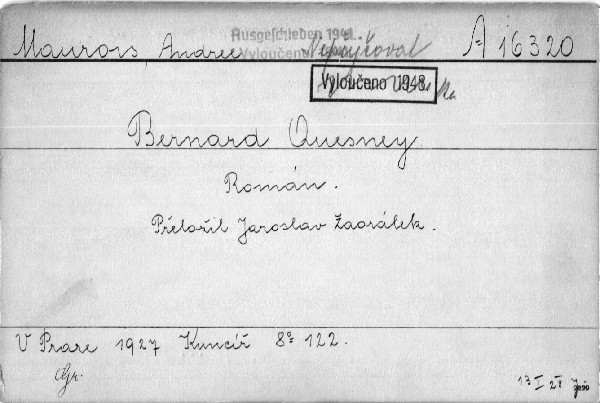 Ausgeschieden 1941.
Maurois, Andree Vyloučeno Nepůjčovat A 16320
Vyloučeno 1948
Bernard Quesney.
Román.
Přeložil Jaroslav Zaorálek.
V Praze 1927 Kuncíř 8° 122.
13 I 28